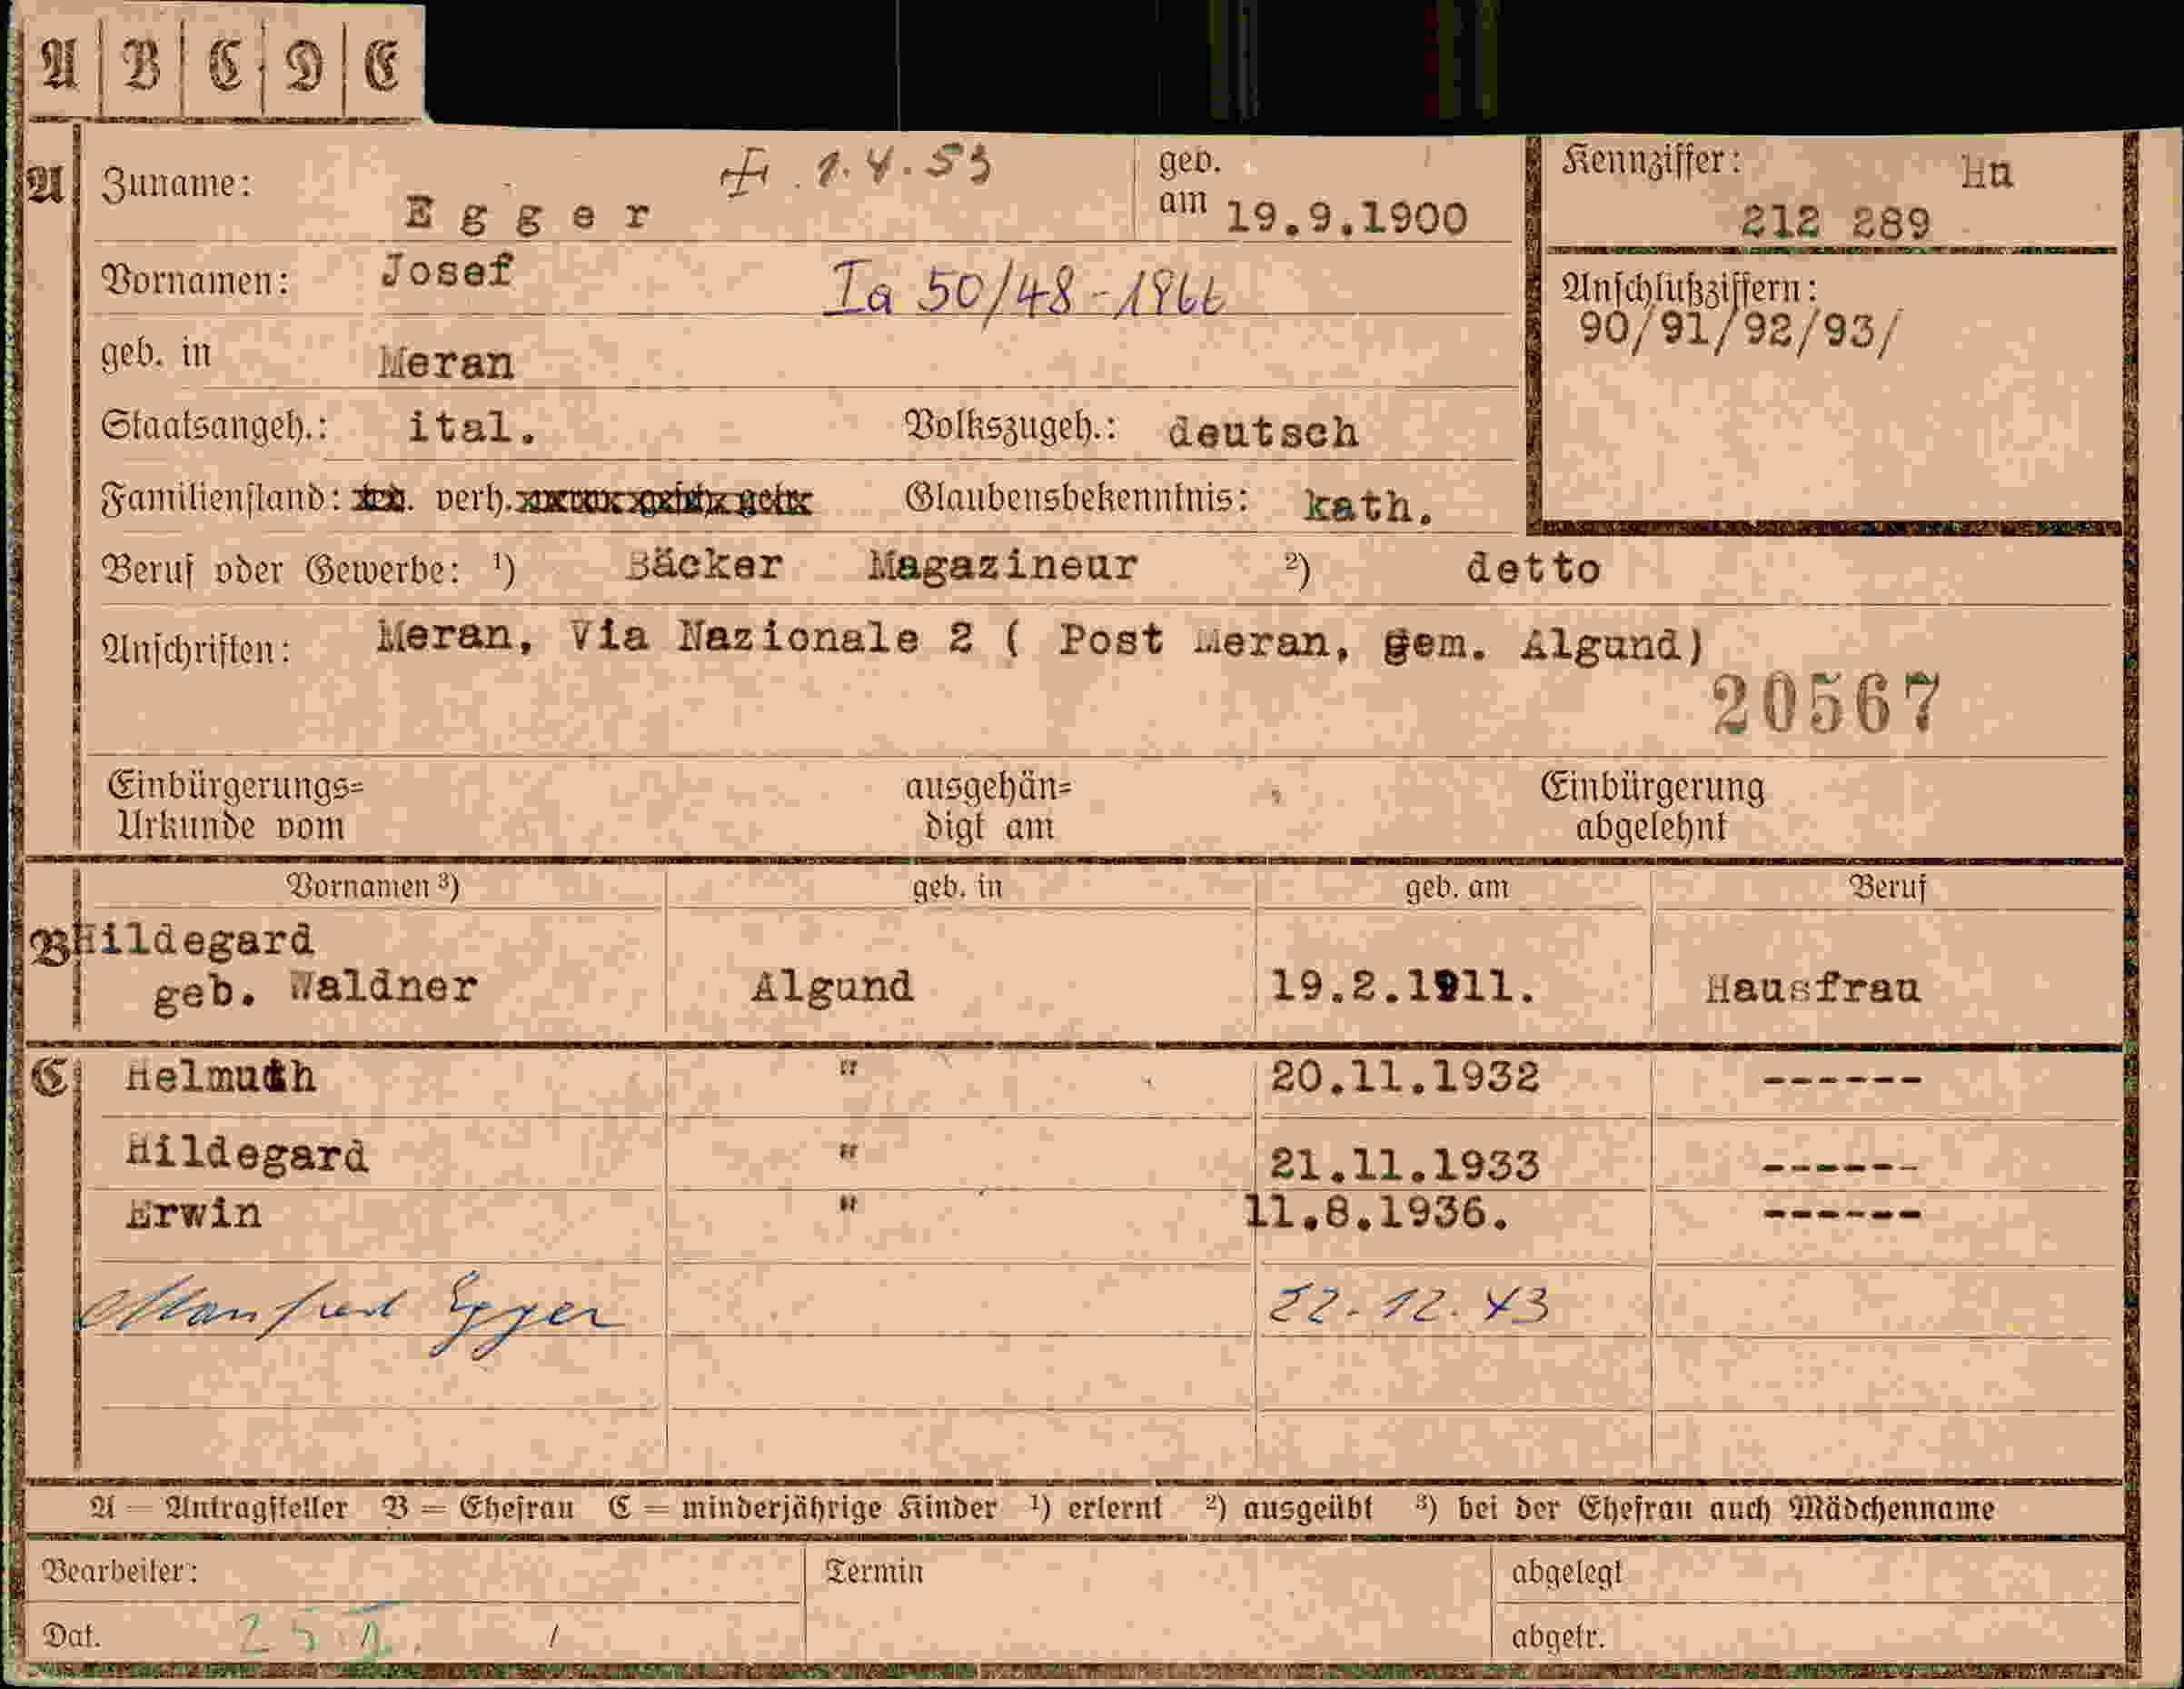 A B C D E
A Zuname: Egger 1.4.53 geb. am 19.9.1900
Kennziffer: Hn
212 289
Vornamen: Josef Ia 50/48-1966
Anschlußziffern:
90/91/92/93/
geb. in Meran
Staatsangeh.: ital. Volkszugeh.: deutsch
Familienstand: verh. Glaubensbekenntnis: kath.
Beruf oder Gewerbe: ¹) Bäcker Magazineur ²) detto
Anschriften: Meran, Via Nazionale 2 ( Post Meran, gem. Algund)
20567
Einbürgerungs= ausgehän= Einbürgerung
Urkunde vom digt am abgelehnt
Vornamen ³) geb. in geb. am Beruf
B Hildegard
geb. Waldner Algund 19.2.1911. Hausfrau
C Helmuth " 20.11.1932 ------
Hildegard " 21.11.1933 ------
Erwin " 11.8.1936. ------
Manfred Egger 22.12.43
A = Antragsteller B = Ehefrau C = minderjährige Kinder ¹) erlernt ²) ausgeübt ³) bei der Ehefrau auch Mädchenname
Bearbeiter: Termin abgelegt
Dat. 25 abgetr.